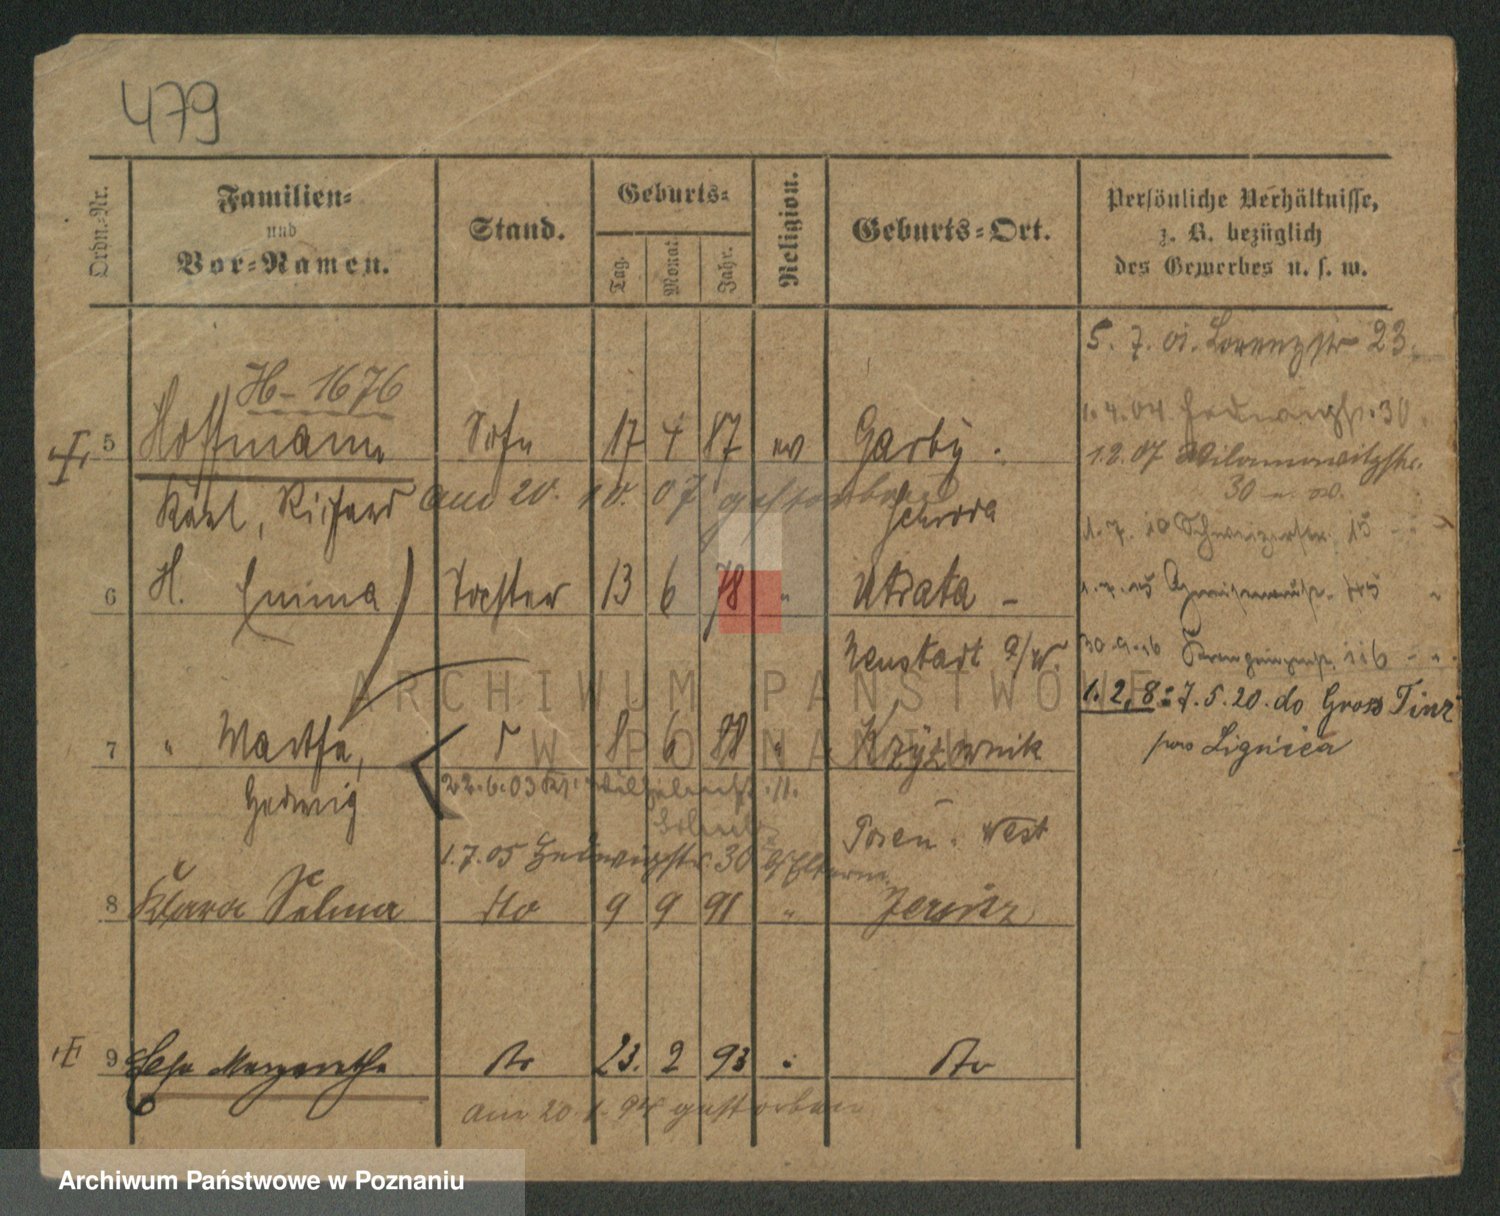 479
Ordn.-Nr.
Familien-
und
Vor-Namen.
Stand.
Geburts-
Tag.
Monat.
Jahr.
Religion.
Geburts-Ort.
Persönliche Verhältnisse,
z. B. bezüglich
des Gewerbes u. s. w.
5. 7. 01. Lorenzstr 23.
H-1676
1. 4. 04 Hedwigstr. 30
5 Hoffmann Sohn 17 4 87 ev Garby.
1.2.07 Wilamowitzstr.
30
Karl, Richard am 20. 10. 07 gestorben Schroda
1. 7. 10 15
6 H. Emma Tochter 13 6 78 " Utrata -
Neustadt a/W.
30.9.16 116
1. 2, 8: 7. 5. 20. do Gross Tinz
7 " Martha, 8 6 88 " Krzyzownik
Lignica
Hedwig 22.6.03 11.
Posen. West
1.7.05 Hedwigstr. 30 z. Eltern
8 Klara Selma dto 9 9 91 " Jersitz
9 Margarethe dto 23. 2 93 " dto
am 20 94 gestorben
ARCHIWUM PAŃSTWOWE
W POZNANIU
Archiwum Państwowe w Poznaniu